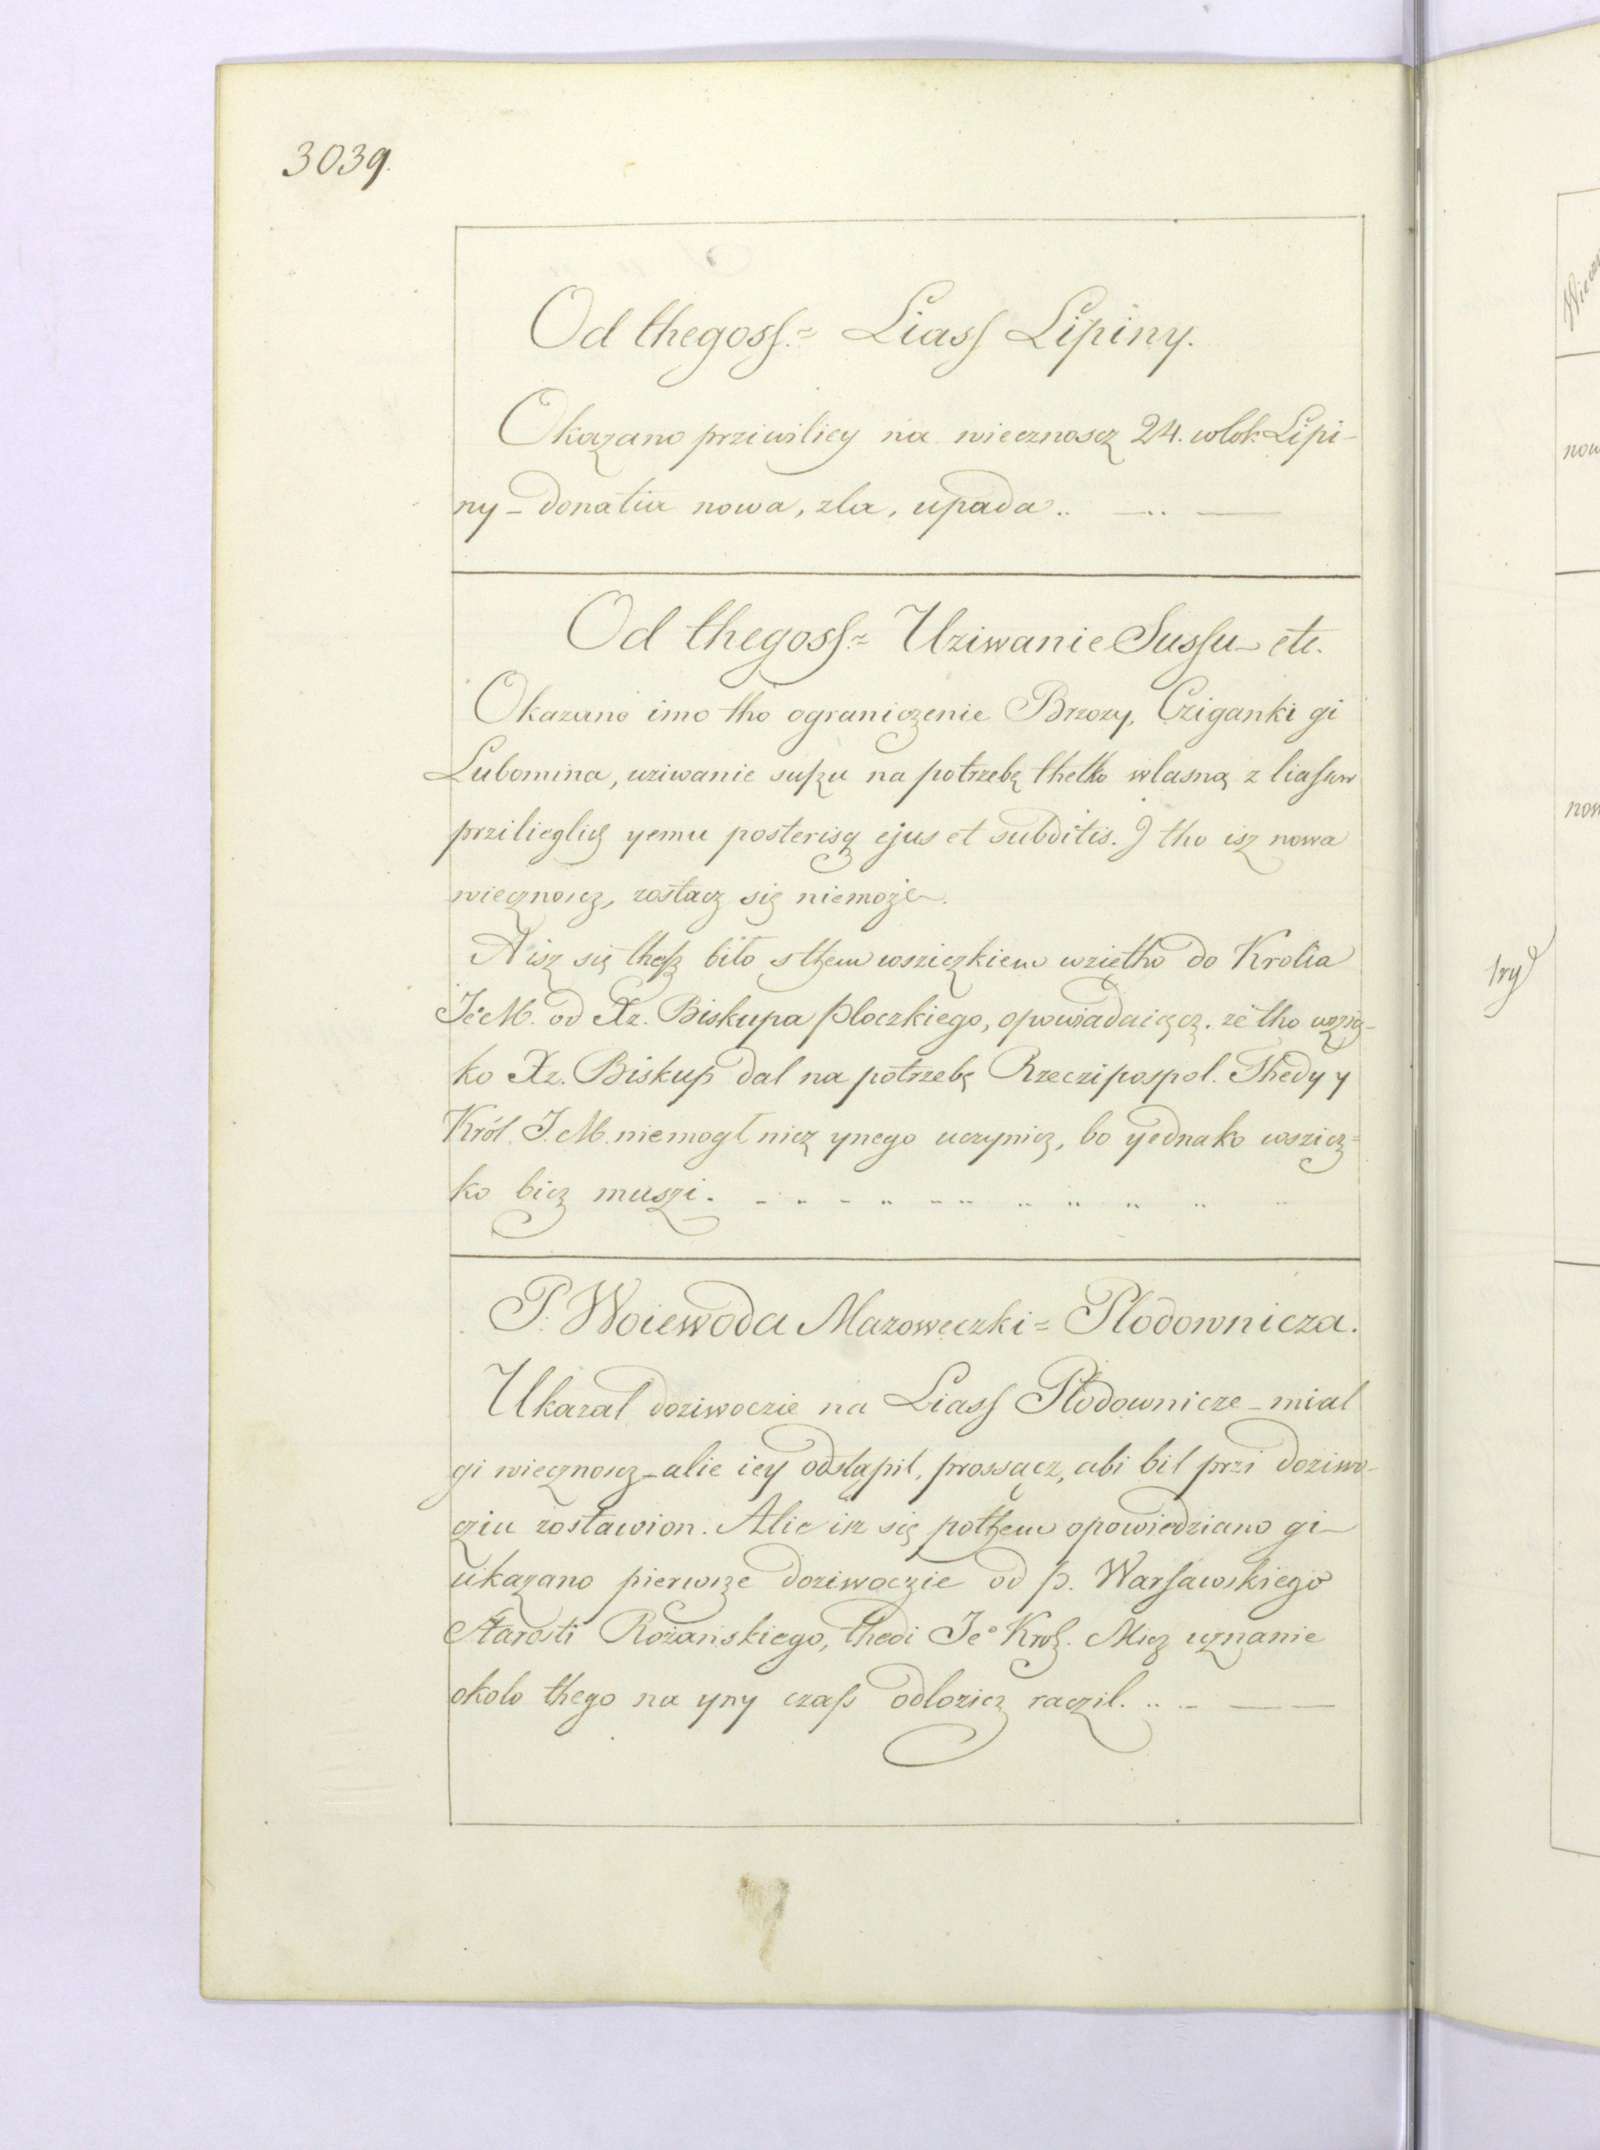 3039.
Od thegosſ.= Liasſ Lipiny.
Okazano prziwiliey na wiecznoscz 24. wlok Lipi-
ny - donatia nowa, zla, upada..
Od thegosſ.= Uziwanie Susſu - etc.
Okazano imo tho ograniczenie Brzozy, Cziganki gi
Lubomina, uziwanie suſzu na potrzebę thelko wlasną z liaſsow
przilieglich yemu posterisq ejus et subditis. J tho isz nowa
wiecznoscz, zostacz się niemoże.
A isz się thesz biło s them wsziczkiem wziętho do Krolia
JeM. od Xz. Biskupa Ploczkiego, opowiadaiącz. że tho wszig-
ko Xz. Biskup dal na potrzebę Rzeczipospol. Thedy y
Król. J. M. niemogł nicz ynego uczynicz, bo yednako wszicz=
ko bicz muszi.
P. Woiewoda Mazoweczki = Plodownicza.
Ukazal doziwoczie na Liasſ Płodownicze - mial
gi wiecznoscz - alie iey odstąpił, prossącz, abi bil przi doziwo-
cziu zostawion. Alie iz się pothem opowiedziano gi
ukazano pierwsze doziwoczie od p. Warſawskiego
Starosti Rożanskiego, thedi Jeº Krol. Mcz uznanie
okolo thego na yny czaſs odlozicz raczil.
Wiecz
now
now
try